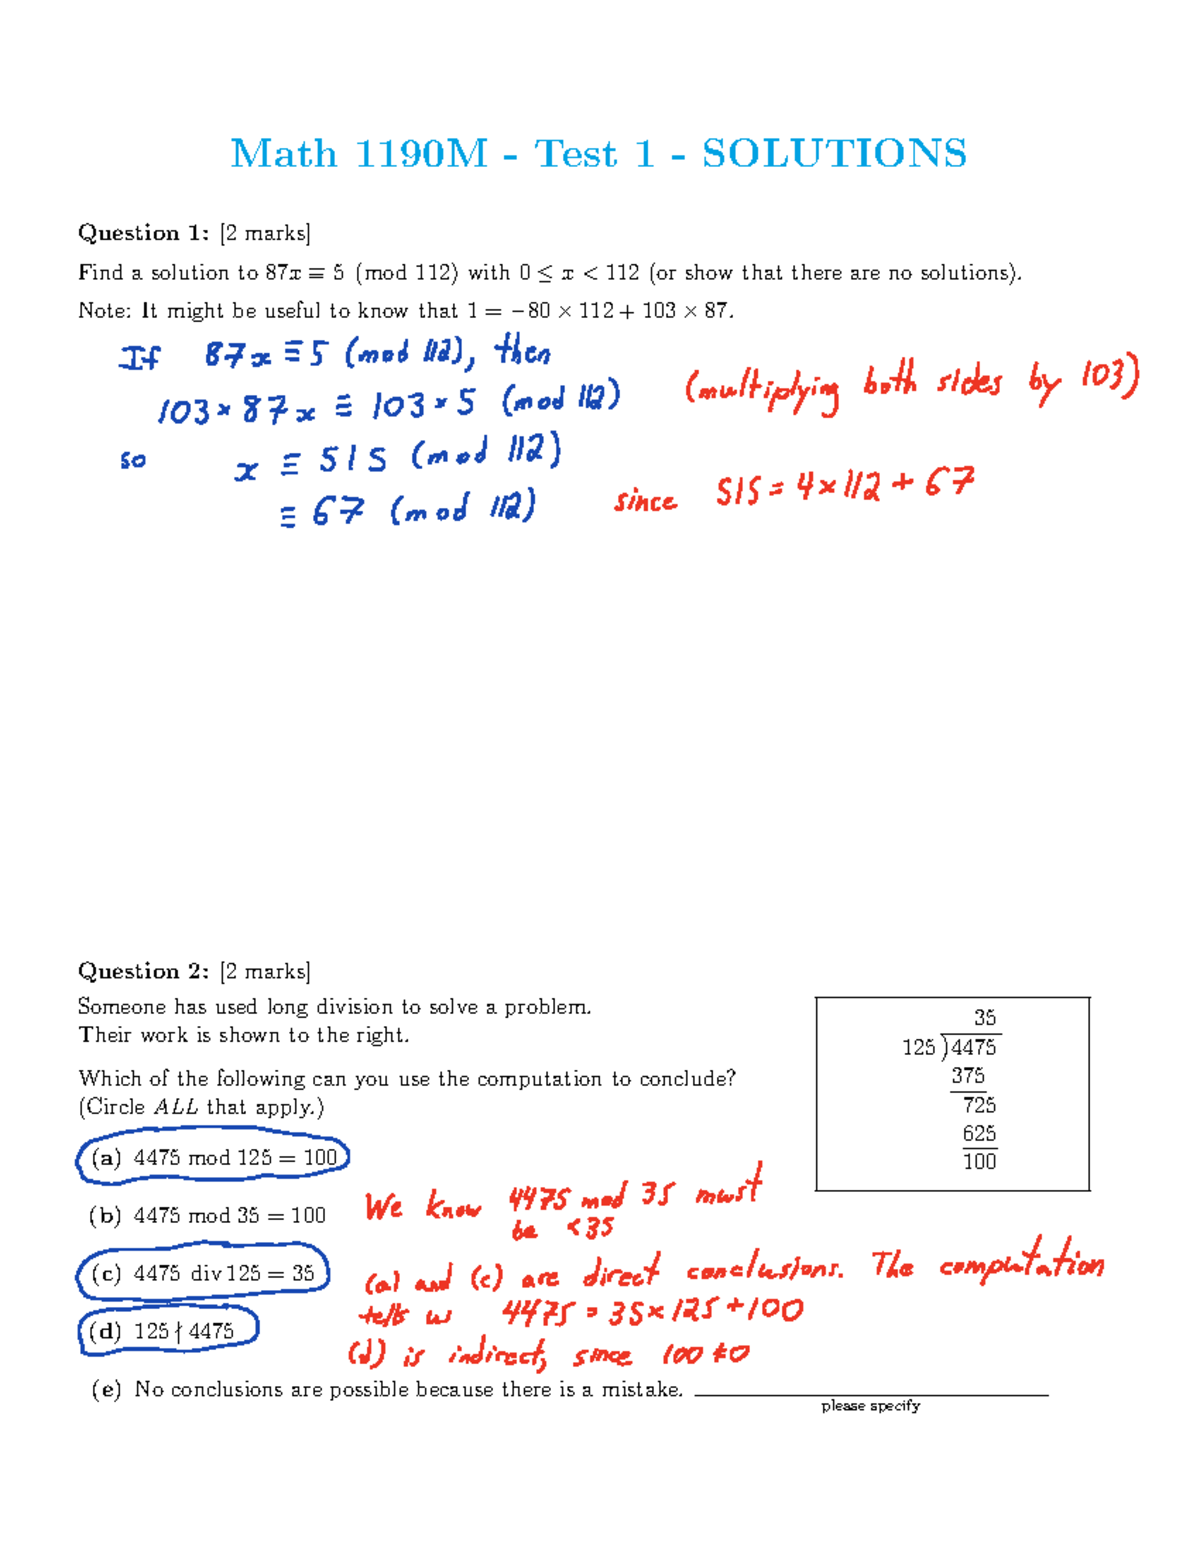 Math 1190M - Test 1 - SOLUTIONS
Question 1: [2 marks]
Find a solution to 87x ≡ 5 (mod 112) with 0 ≤ x < 112 (or show that there are no solutions).
Note: It might be useful to know that 1 = −80 × 112 + 103 × 87.
If 87x ≡ 5 (mod 112), then
103 × 87x ≡ 103 × 5 (mod 112) (multiplying both sides by 103)
so x ≡ 515 (mod 112)
≡ 67 (mod 112) since 515 = 4 × 112 + 67
Question 2: [2 marks]
Someone has used long division to solve a problem.
Their work is shown to the right.
Which of the following can you use the computation to conclude?
(Circle ALL that apply.)
35
125 ) 4475
375
725
625
100
(a) 4475 mod 125 = 100
(b) 4475 mod 35 = 100 We know 4475 mod 35 must
be < 35
(c) 4475 div 125 = 35 (a) and (c) are direct conclusions. The computation
tells us 4475 = 35 × 125 + 100
(d) 125 ∤ 4475 (d) is indirect, since 100 ≠ 0
(e) No conclusions are possible because there is a mistake.
please specify